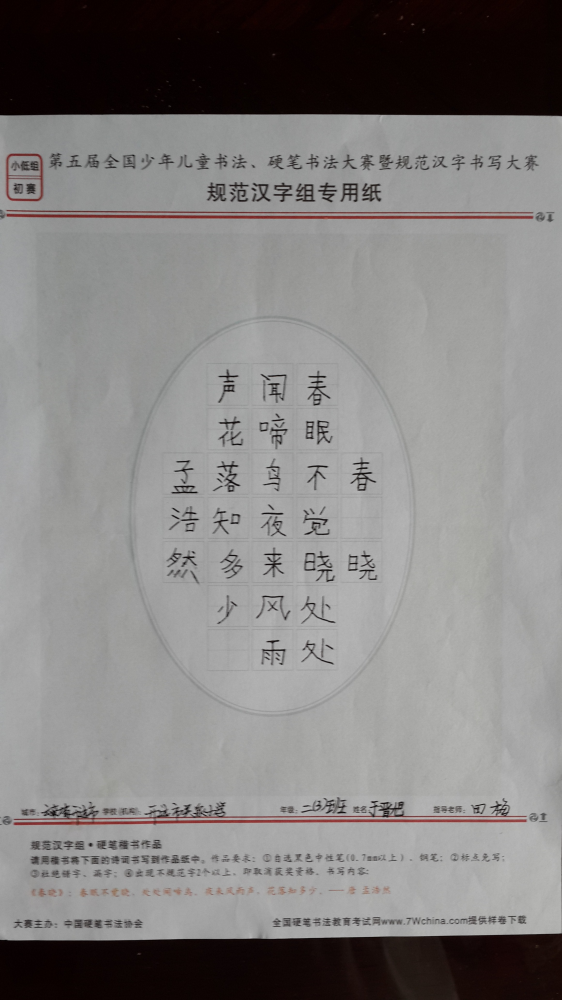 小低组
初赛
第五届全国少年儿童书法、硬笔书法大赛暨规范汉字书写大赛
规范汉字组专用纸
春晓
春眠不觉晓处处
闻啼鸟夜来风雨
声花落知多少
孟浩然
城市: 学校(机构): 年级: 二(3)班 姓名: 于晋旭 指导老师: 田梅
规范汉字组•硬笔楷书作品
请用楷书将下面的诗词书写到作品纸中。作品要求:①自选黑色中性笔(0.7mm以上)、钢笔;②标点免写;
③杜绝错字、漏字;④出现不规范字2个以上,即取消获奖资格。书写内容:
《春晓》:春眠不觉晓,处处闻啼鸟。夜来风雨声,花落知多少。——唐 孟浩然
大赛主办:中国硬笔书法协会 全国硬笔书法教育考试网www.7Wchina.com提供样卷下载